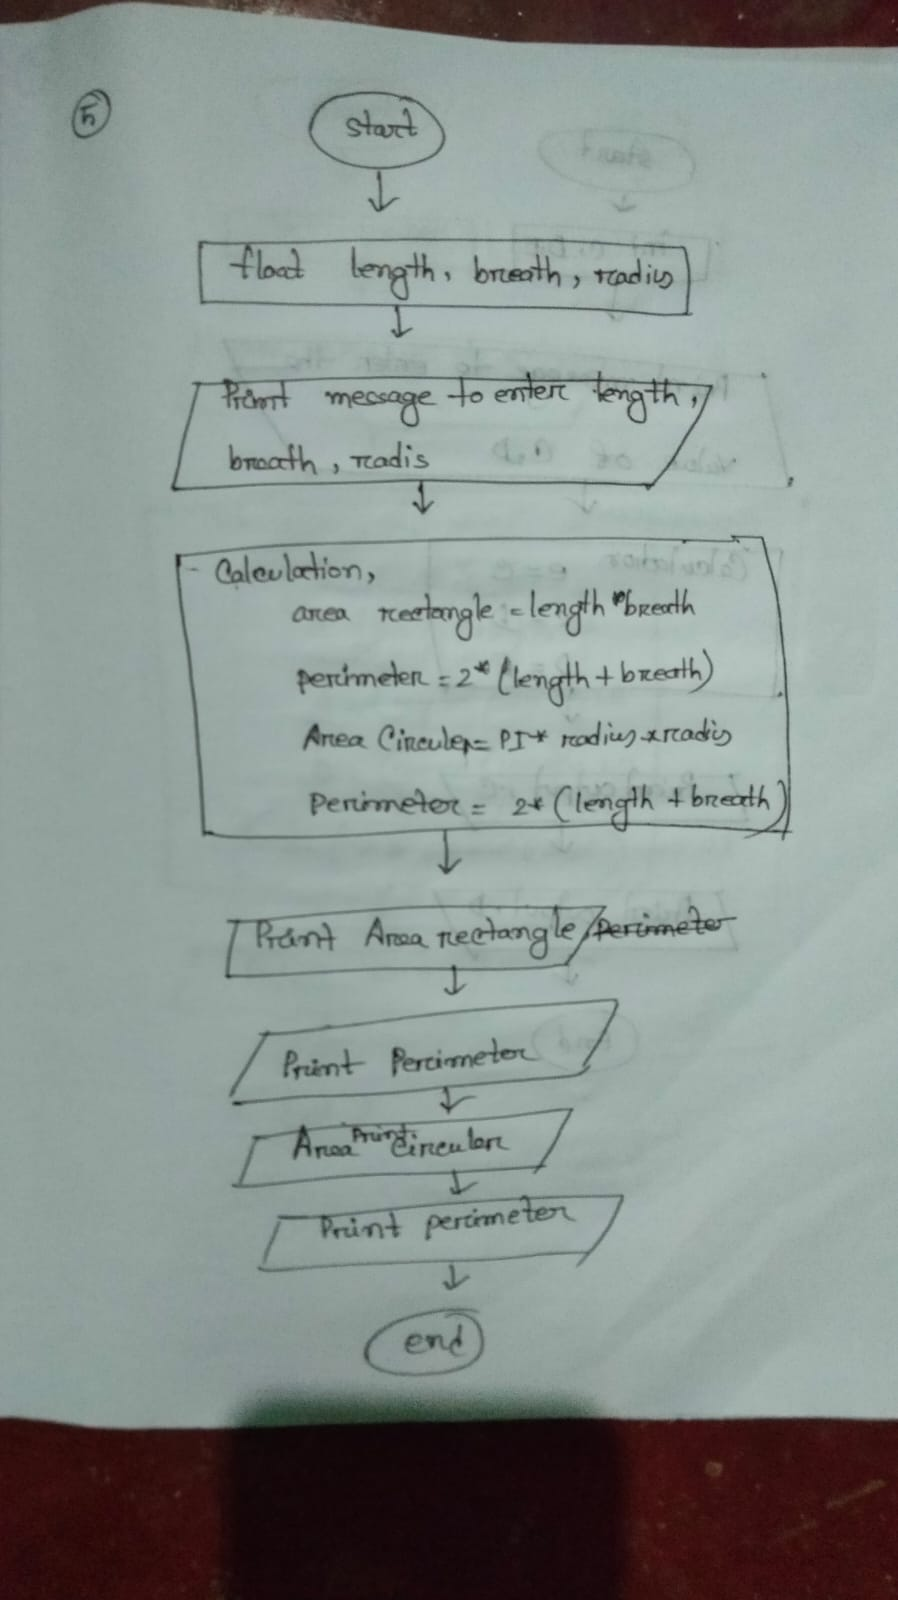 5
start
float length, breath, radius
Print message to enter length,
breath, radis
Calculation,
area rectangle = length * breath
perimeter = 2* (length + breath)
Area Circuler = PI* radius * radis
Perimeter = 2* (length + breath)
Print Area rectangle perimeter
Print Perimeter
Area Print Circuler
Print perimeter
end